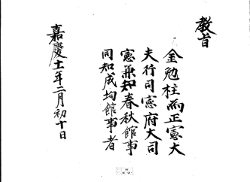 敎旨
金勉柱爲正憲大
夫行司憲府大司
憲兼知春秋館事
同知成均館事者
嘉慶十一年二月初十日